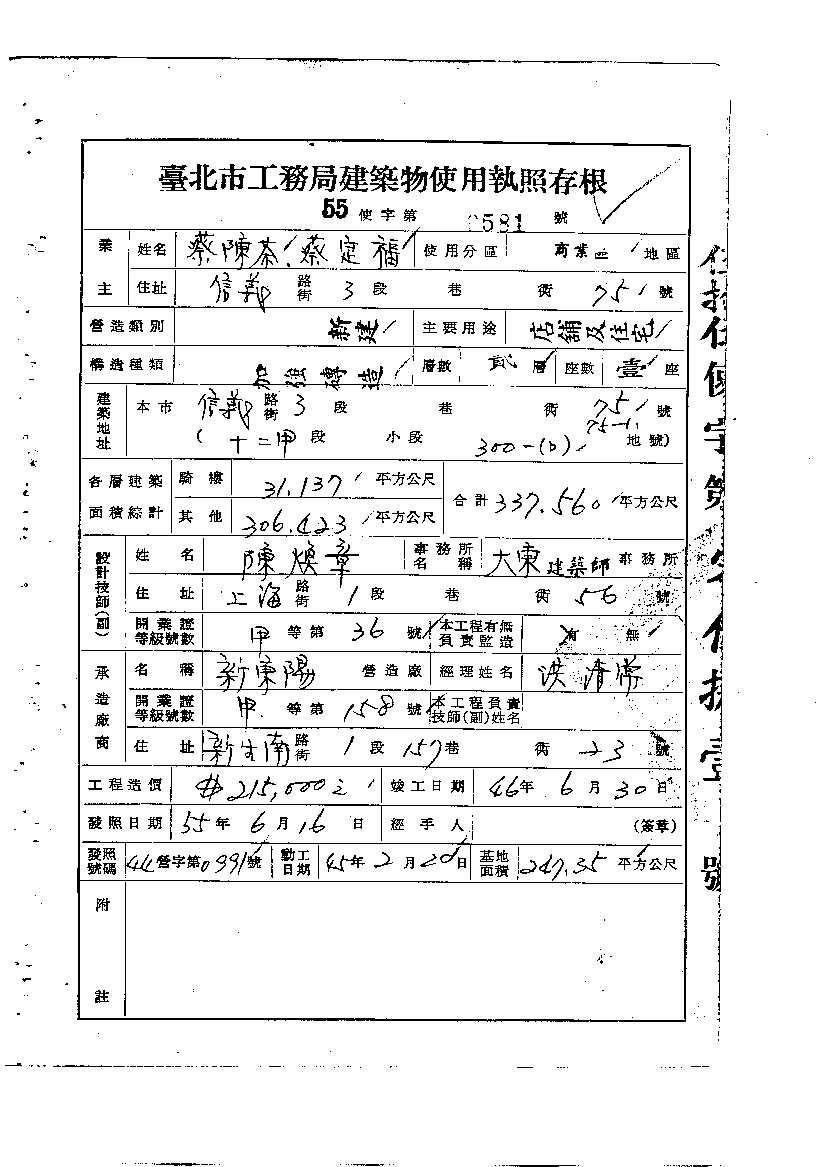 臺北市工務局建築物使用執照存根
55 使字第 0581 號
業主 姓名 蔡陳茶、蔡定福 使用分區 商業區 地區
住址 信義 路街 3 段 巷 衖 75 號
營造類別 新建 主要用途 店舖及住宅
構造種類 加強磚造 層數 貳 層 座數 壹 座
建築地址 本市 信義 路街 3 段 巷 衖 75 號
( 十二甲 段 小段 300-(b) 75-1 地號)
各層建築面積綜計 騎樓 31.137 平方公尺 合計 337.560 平方公尺
其他 306.423 平方公尺
設計技師(副) 姓名 陳煥章 事務所名稱 大東建築師 事務所
住址 上海 路街 1 段 巷 衖 56 號
開業證等級號數 甲 等第 36 號 本工程有無負責監造 有 無
承造廠商 名稱 新東陽 營造廠 經理姓名 洪清
開業證等級號數 甲 等第 158 號 本工程負責技師(副)姓名
住址 新生南 路街 1 段 157 巷 衖 23 號
工程造價 $215,000元 竣工日期 46年 6月 30日
發照日期 55年 6月 16日 經手人 (簽章)
發照號碼 44營字第0991號 動工日期 45年 2月 20日 基地面積 247.35 平方公尺
附註